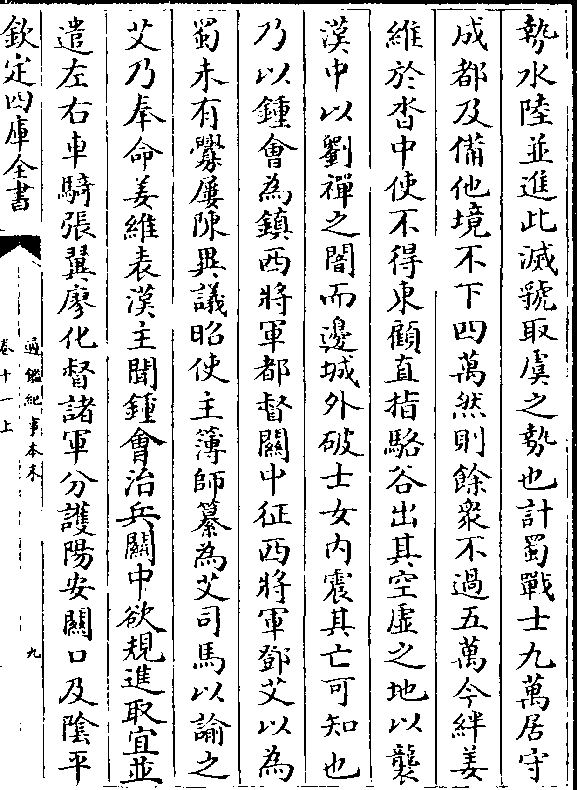 勢水陸並進此滅虢取虞之勢也計蜀戰士九萬居守
成都及備他境不下四萬然則餘衆不過五萬今絆姜
維於沓中使不得東顧直指駱谷出其空虚之地以襲
漢中以劉禪之闇而邊城外破士女内震其亡可知也
乃以鍾會為鎮西將軍都督關中征西將軍鄧艾以為
蜀未有釁屢陳異議昭使主簿師纂為艾司馬以諭之
艾乃奉命姜維表漢主聞鍾會治兵關中欲規進取宜並
遣左右車騎張翼廖化督諸軍分䕶陽安關口及陰平
欽定四庫全書
通鑑紀事本末
卷十一上
九